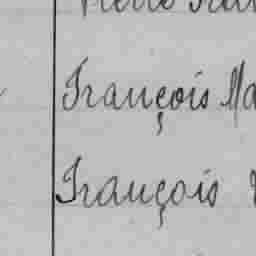 François Ma
François